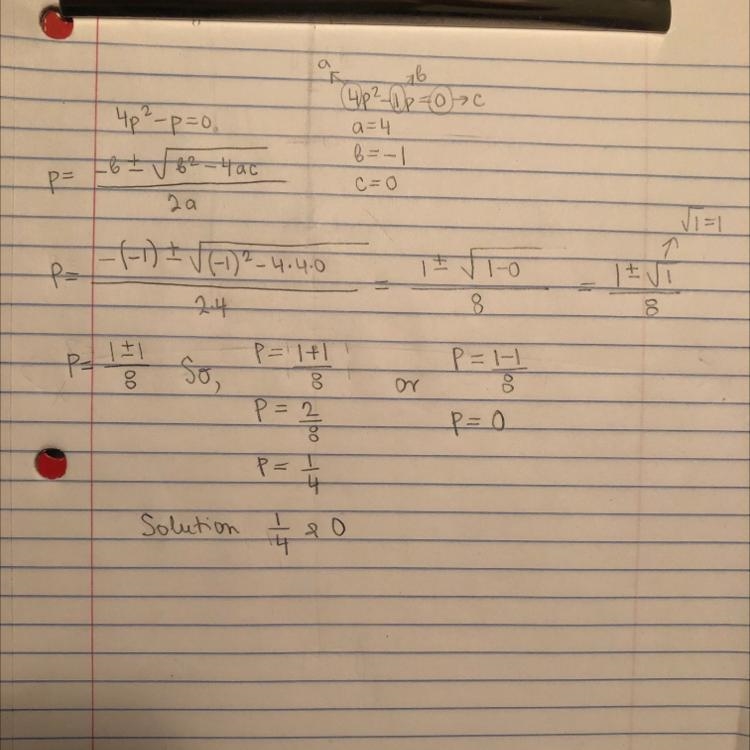 a b
4p² - 1p = 0 → c
4p² - p = 0
a = 4
b = -1
c = 0
p = (-b ± √(b² - 4ac)) / 2a
√1 = 1
p = (-(-1) ± √((-1)² - 4·4·0)) / 2·4 = (1 ± √(1-0)) / 8 = (1 ± √1) / 8
p = (1 ± 1) / 8 So, p = (1+1) / 8 or p = (1-1) / 8
p = 2/8 p = 0
p = 1/4
Solution 1/4 & 0